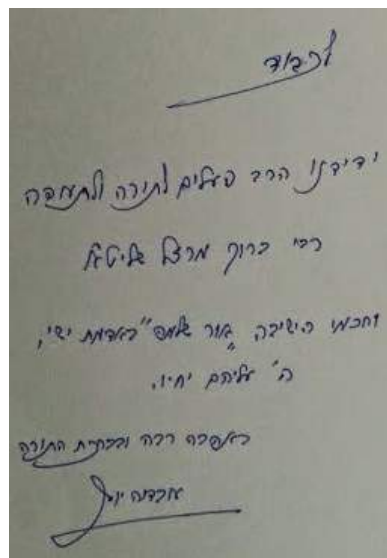 לכבוד
ידידנו הרב פעלים לתורה ולתעודה
רבי ברוך מרצל שליט"א
וחכמי הישיבה "גור שלמה" באדמת ישי,
ה' עליהם יחיו.
באהבה רבה ובברכת התורה
עובדיה יוסף